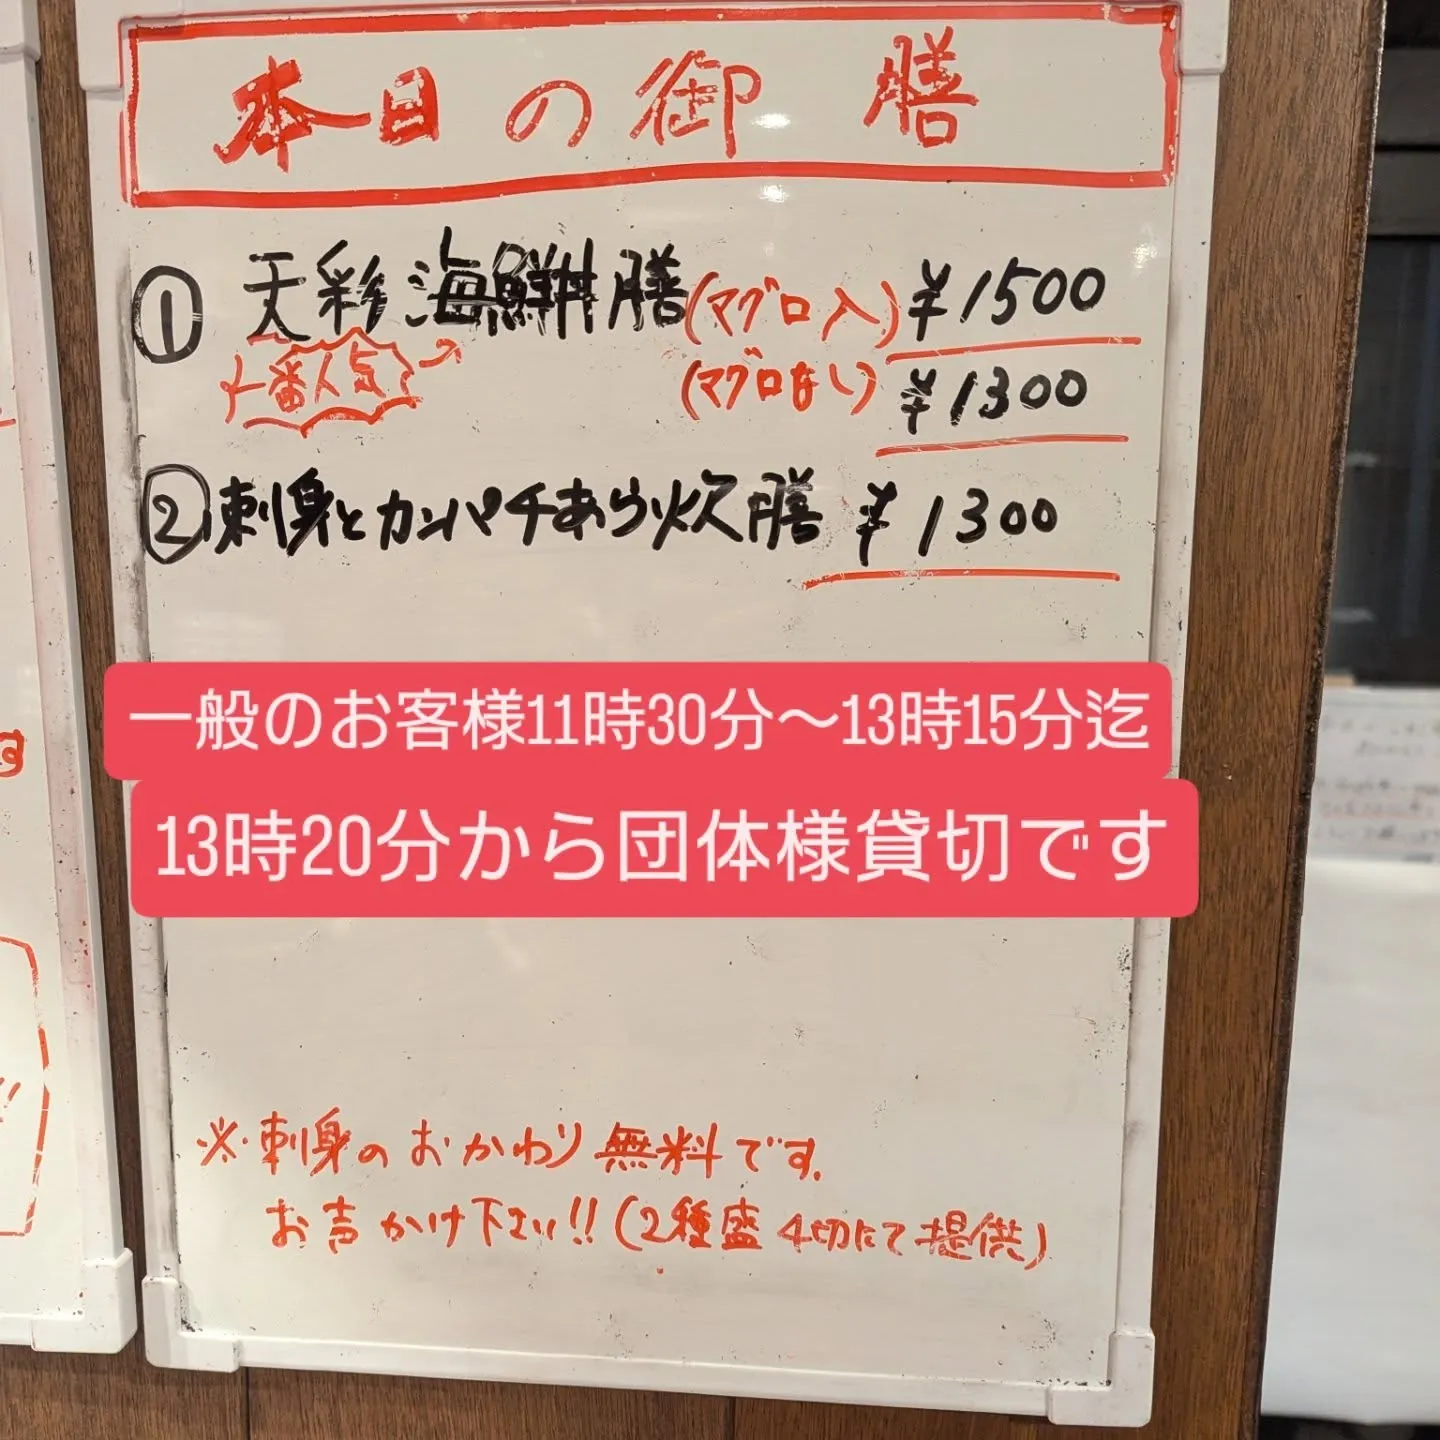 本日の御膳
① 天彩海鮮丼膳(マグロ入)¥1500
一番人気
(マグロなし)¥1300
②刺身とカンパチあら炊膳 ¥1300
一般のお客様11時30分〜13時15分迄
13時20分から団体様貸切です
※刺身のおかわり無料です。
お声かけ下さい!!(2種盛4切にて提供)
す